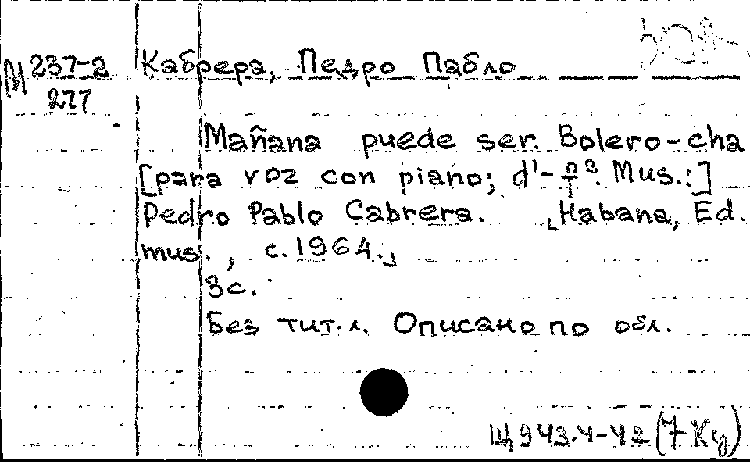 М 237-2 Кабрера, Педро Пабло
277
Mañana puede ser. Bolero-cha
[para voz con piano; d¹- Mus.:]
Pedro Pablo Cabrera. [Habana, Ed.
mus., c.1964.]
3с.
Без тит.л. Описано по обл.
Щ943.4-42(7Ку)